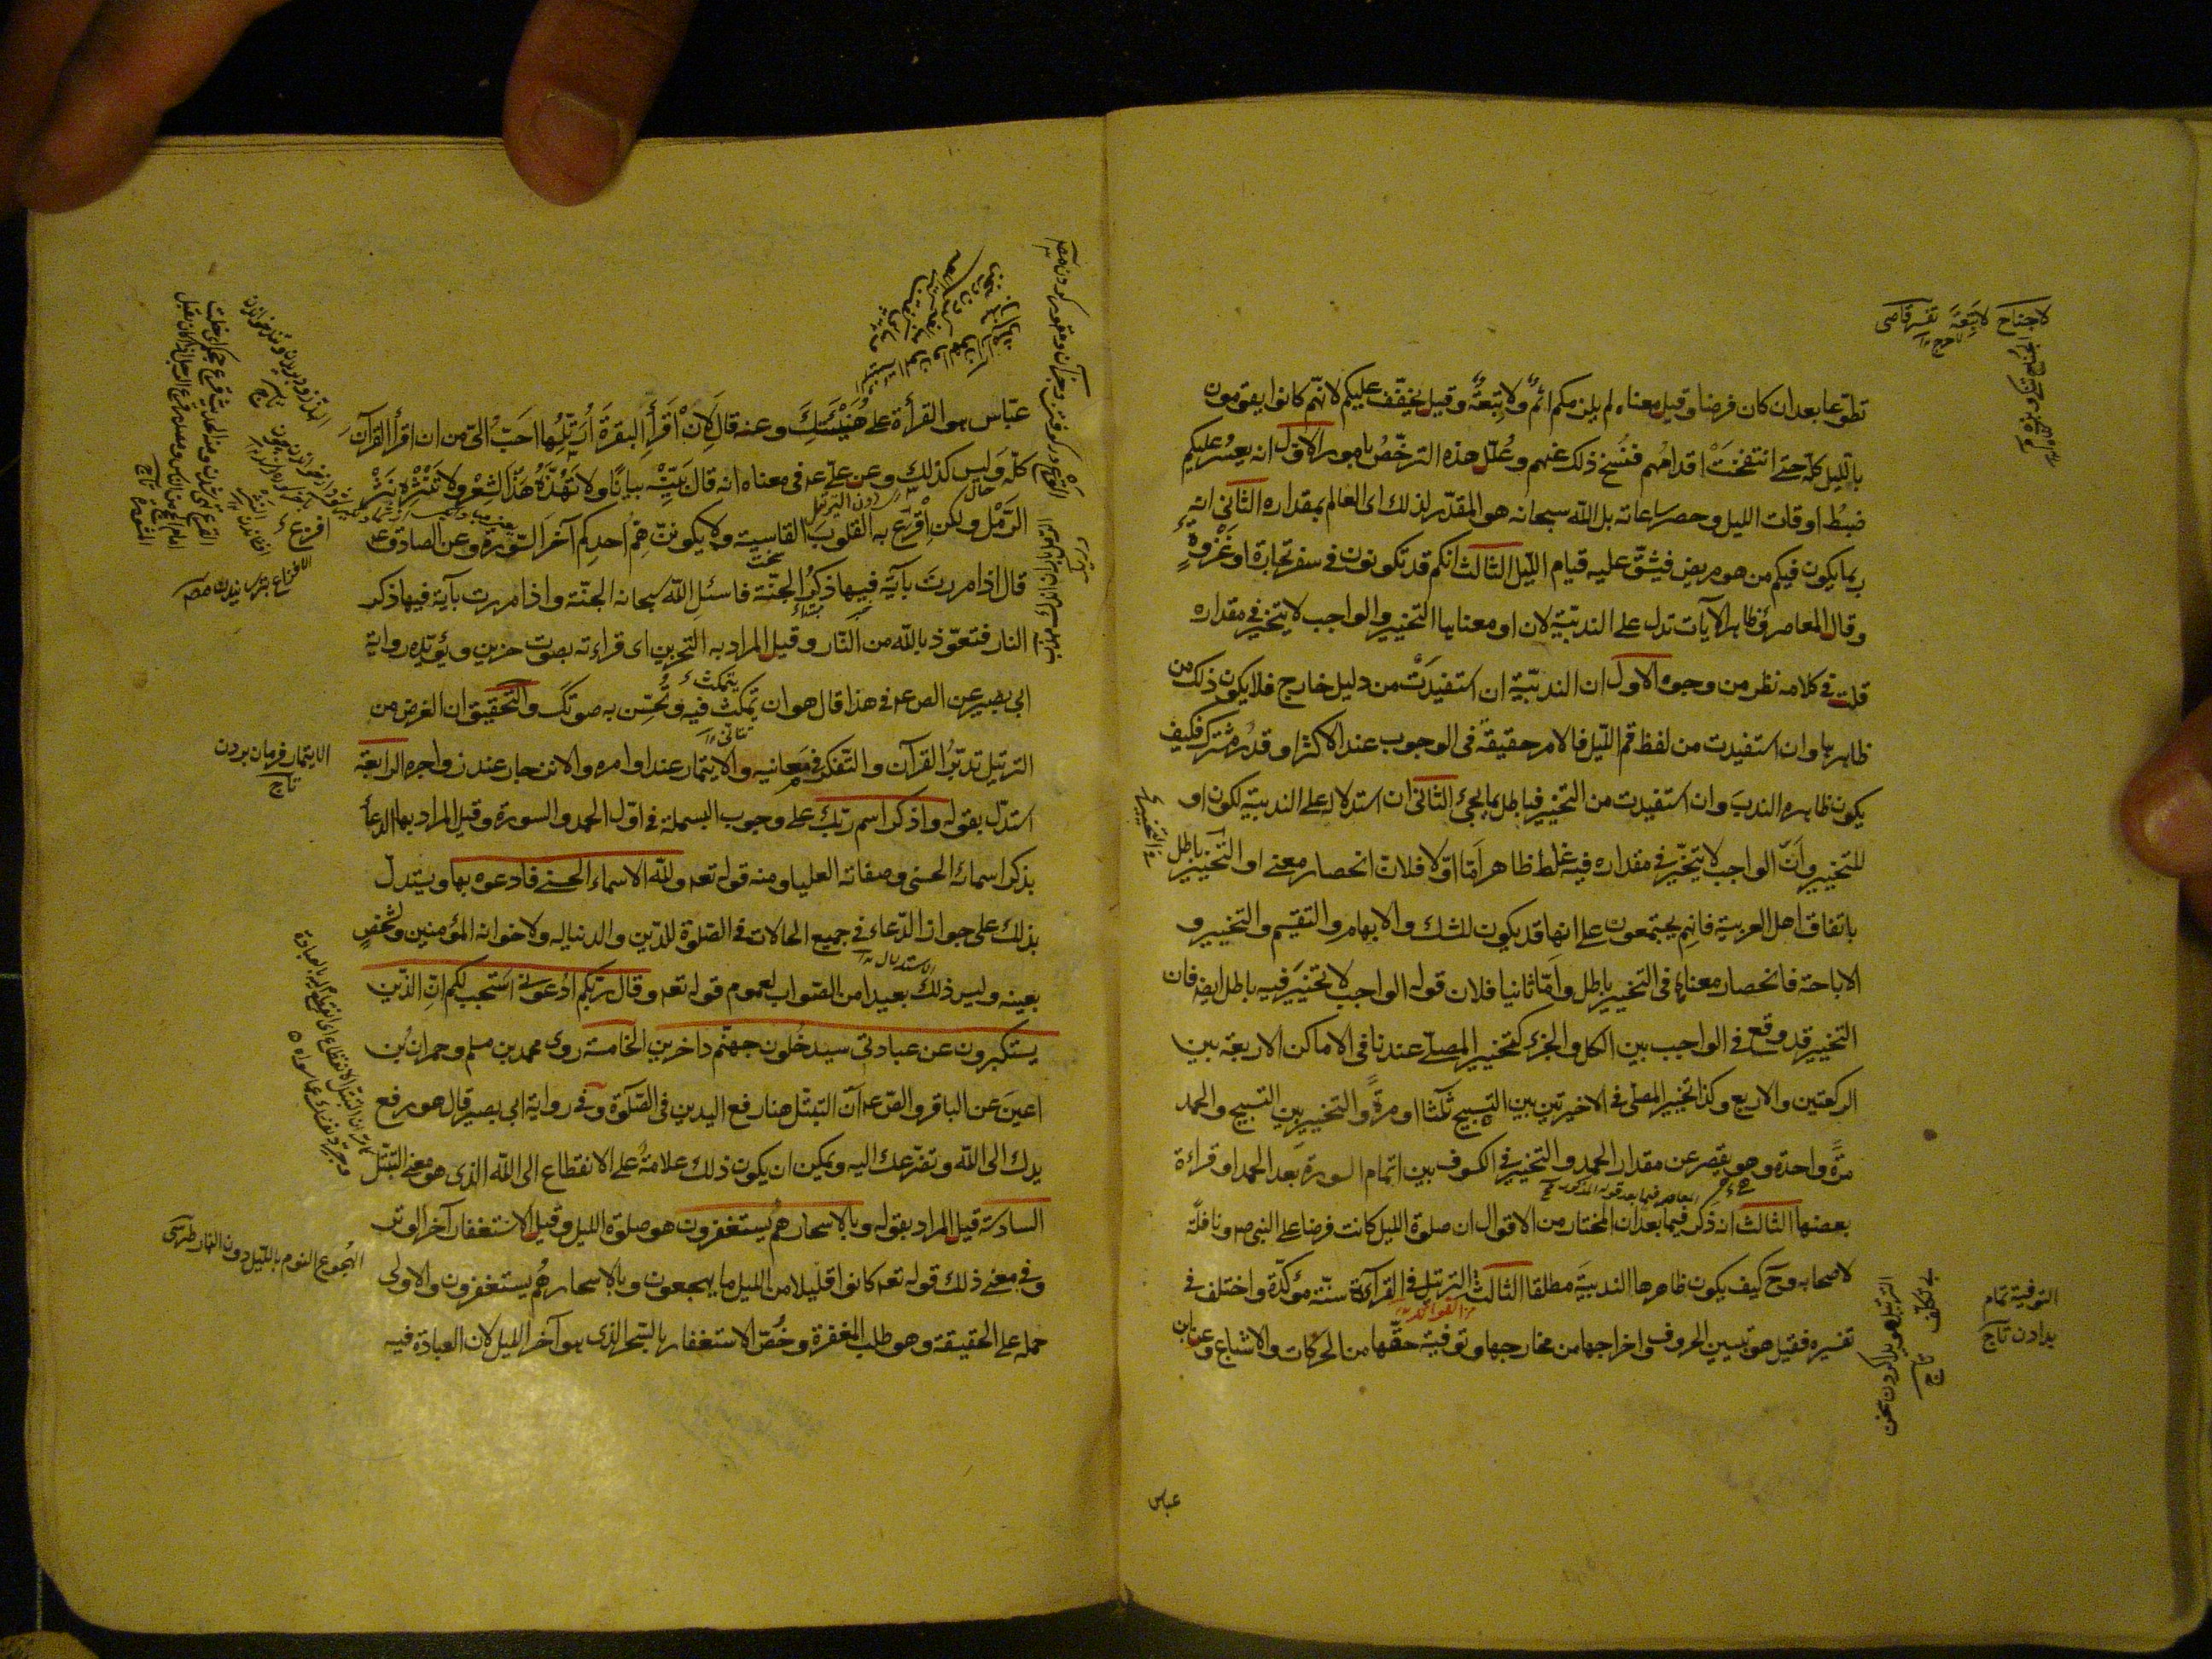 تطوعا بعد ان كان فرضا وقيل معناه لم يلزمكم اثم ولا تبعة وقيل يخفّف عليكم لانهم كانوا يقومون
بالليل كلّه حتى انتفخت اقدامهم فنسخ ذلك عنهم وعلّل هذه الترخّص بامور الاول انه يعسر عليكم
ضبط اوقات الليل وحصر ساعاته بل الله سبحانه هو المقدّر لذلك اى العالم بمقداره الثانى انه
ربما يكون فيكم من هو مريض فيشقّ عليه قيام الليل الثالث انكم قد تكونون فى سفر تجارة او غزوة
وقال المعاصر وظاهر الآيات تدل على الندبيّة لان او معناها التخيير والواجب لا يتخير فى مقداره
قلت فى كلامه نظر من وجوه الاول ان الندبيّة ان استفيدت من دليل خارج فلا يكون ذلك من
ظاهرها وان استفيدت من لفظ قم الليل فالامر حقيقة فى الوجوب عند الاكثر او قدر مشترك فكيف
يكون ظاهره الندب وان استفيدت من التخيير فباطل بما يجئ الثانى ان استدلاله على الندبية لكون او
للتخيير وانّ الواجب لا يتخيّر فى مقداره فيه غلط ظاهر امّا اولا فلان انحصار معنى او التخيير باطل
باتفاق اهل العربية فانهم يجتمعون على انها قد يكون للشك والابهام والتقسيم والتخيير و
الاباحة فانحصار معناها فى التخيير باطل وامّا ثانيا فلان قوله الواجب لا تخيير فيه باطل ايضا فان
التخيير قد وقع فى الواجب بين الكل والجزء كتخيير المصلّى عندنا فى الاماكن الاربعة بين
الركعتين والاربع وكذا تخيير المصلى فى الاخيرتين بين التسبيح ثلثا او مرة والتخيير بين التسبيح والحمد
مرّة واحدة وهو يقصر عن مقدار الحمد والتخيير فى الكسوف بين اتمام السورة بعد الحمد او قراءة
بعضها الثالث انه ذكر فيما بعد ان المختار من الاقوال ان صلوة الليل كانت فرضا على النبى ص ونافلة
لاصحابه وح كيف يكون ظاهرها الندبية مطلقا الثالث الترتيل فى القراءة سنّة مؤكدة واختلف فى
تفسيره فقيل هو تبيين الحروف واخراجها من مخارجها وتوفية حقّها من الحركات والاشباع وعن ابن
لاجناح لا تبعة
التوفية تمام
بدادن تاج
عباس
عبّاس هو القرأة على هينتك وعنه قال لان اقرأ البقرة ارتلها احبّ الىّ من ان اقرأ القرآن
كلّه وليس كذلك وعن علىّ ع فى معناه انه قال بيّنه بيانا ولا تهذّه هذّ الشعر ولا تنثره نثر
الرمل ولكن اقرع به القلوب القاسية ولا يكوننّ همّ احدكم آخر السورة وعن الصادق ع
قال اذا مررت بآية فيها ذكر الجنّة فاسئل الله سبحانه الجنّة واذا مررت بآية فيها ذكر
النار فتعوّذ بالله من النّار وقيل المراد به التحزين اى قراءته بصوت حزين ويؤيّده رواية
ابى بصير عن الص ع فى هذا قال هو ان تمكث فيه وتحسّن به صوتك والتحقيق ان الغرض من
الترتيل تدبّر القرآن والتفكر فى معانيه والايتمار عند اوامره والانزجار عند زواجره الرابعة
استدلّ بقوله واذكر اسم ربك على وجوب البسملة فى اوّل الحمد والسورة وقيل المراد بها الدعاء
بذكر اسمائه الحسنى وصفاته العليا ومنه قوله تعه ولله الاسماء الحسنى فادعوه بها ويستدلّ
بذلك على جواز الدّعاء فى جميع الحالات فى الصلوة للدّين والدنيا له ولاخوانه المؤمنين ولشخص
بعينه وليس ذلك بعيدا من الصّواب لعموم قوله تعه وقال ربّكم ادعونى استجب لكم انّ الذين
يستكبرون عن عبادتى سيدخلون جهنّم داخرين الخامسة روى محمد بن مسلم وحمران بن
اعين عن الباقر والص ع انّ التبتّل هنا رفع اليدين فى الصّلوة وفى رواية ابى بصير قال هو رفع
يدك الى الله وتضرّعك اليه ويمكن ان يكون ذلك علامة على الانقطاع الى الله الذى هو معنى التبتّل
السادسة قيل المراد بقوله وبالاسحار هم يستغفرون هو صلوة الليل وقيل الاستغفار آخر الوتر
وفى معنى ذلك قوله تعه كانوا قليلا من الليل ما يهجعون وبالاسحار هم يستغفرون والاولى
حمله على الحقيقة وهو طلب المغفرة وخصّ الاستغفار بالسحر الذى هو آخر الليل لان العبادة فيه
الايتمار فرمان بردن
تاج
الهجوع النوم بالليل دون النهار